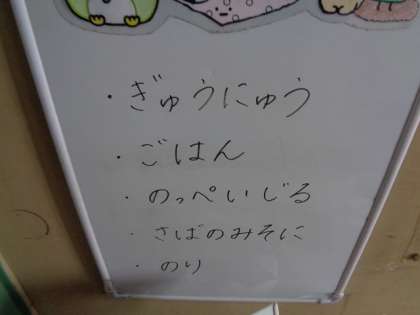 ・ぎゅうにゅう
・ごはん
・のっぺいじる
・さばのみそに
・のり